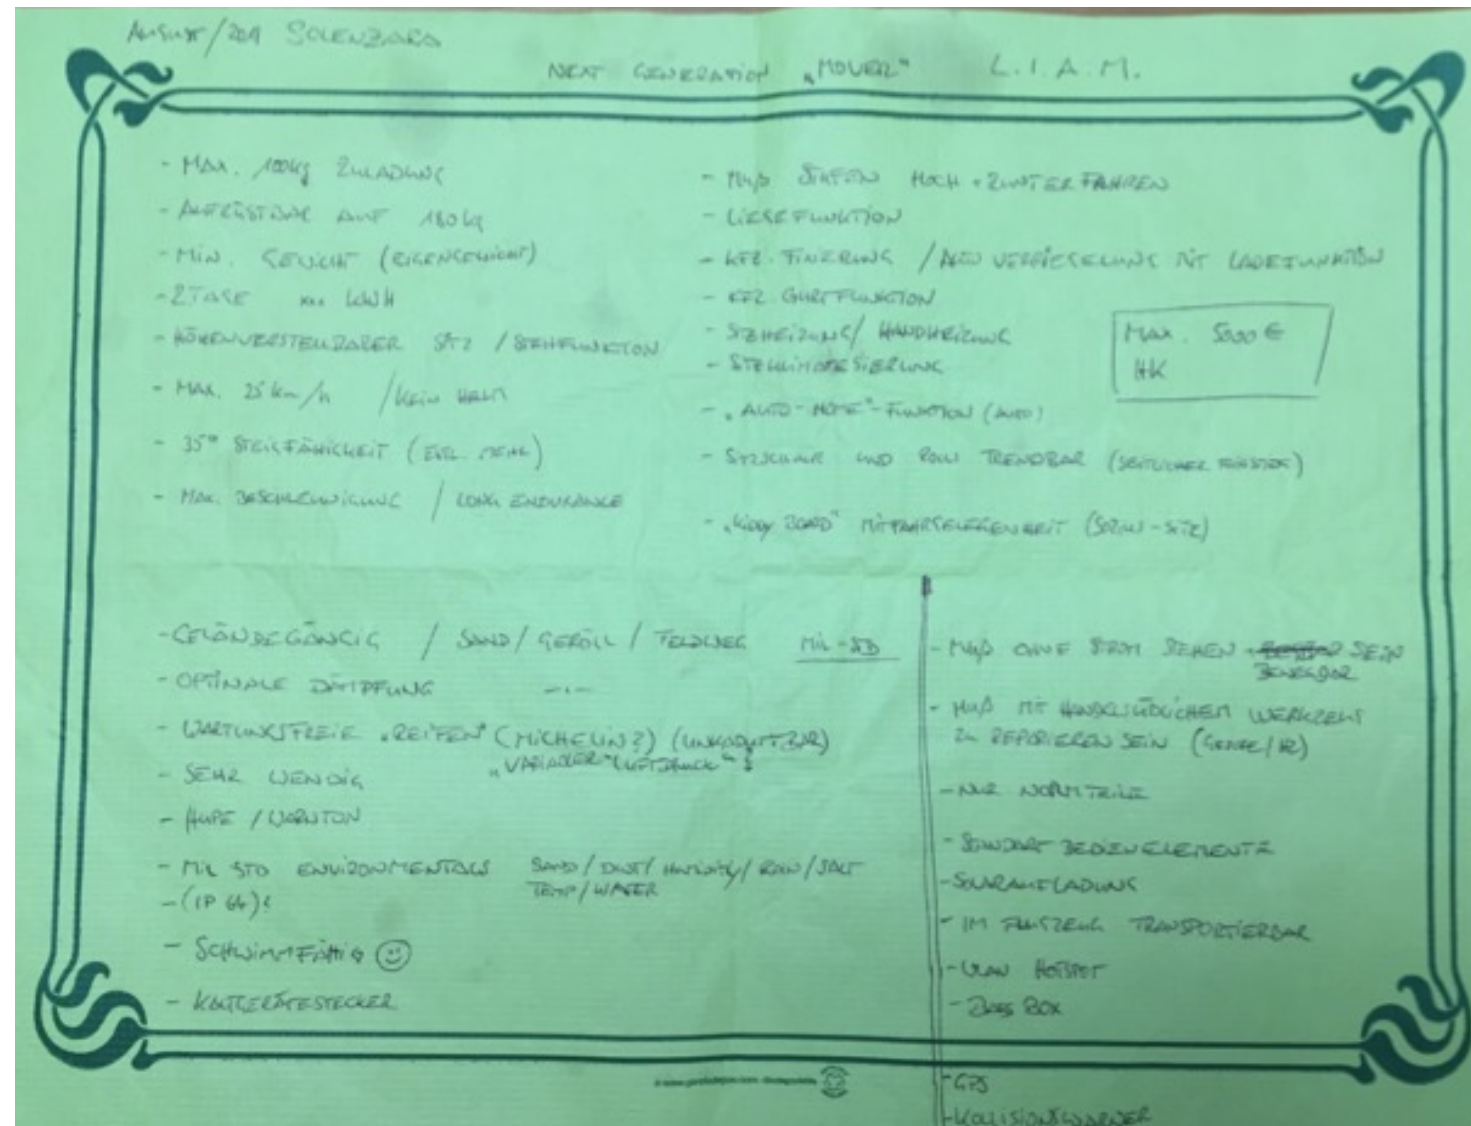 August/2011 SOLENZARA
NEXT GENERATION „MOVER" L.I.A.M.
- MAX. 100kg ZULADUNG
- AUFRÜSTBAR AUF 180kg
- MIN. GEWICHT (EIGENGEWICHT)
- 2 TAGE xxx kWH
- HÖHENVERSTELLBARER SITZ / STEHFUNKTION
- MAX. 25 km/h / KEIN HELM
- 35° STEIGFÄHIGKEIT (EVTL. MEHR)
- MAX. BESCHLEUNIGUNG / LONG ENDURANCE
- MUß STUFEN HOCH + RUNTER FAHREN
- LIEGEFUNKTION
- KFZ. FIXIERUNG / AUTO VERRIEGELUNG MIT LADEFUNKTION
- KFZ. GURTFUNKTION
- SITZHEIZUNG / HANDHEIZUNG
- SITZKLIMATISIERUNG
MAX. 5000 €
HK
- „AUTO-HOME"-FUNKTION (AUTO)
- SITZSCHALE UND ROLLI TRENNBAR (SEITLICHER EINSTIEG)
- „KIDDY BOARD" MITFAHRGELEGENHEIT (SOZIUS-SITZ)
- GELÄNDEGÄNGIG / SAND / GERÖLL / FELDWEG MIL-STD
- OPTIMALE DÄMPFUNG —"—
- WARTUNGSFREIE „REIFEN" (MICHELIN?) (UNKAPUTTBAR)
„VARIABLER" LUFTDRUCK"
- SEHR WENDIG
- HUPE / WARNTON
- MIL STD ENVIRONMENTALS SAND/DUST/HUMIDITY/RAIN/SALT
TEMP/WATER
- (IP 64)?
- SCHWIMMFÄHIG
- KALTGERÄTESTECKER
- MUß OHNE STROM SEHEN SEIN
BEWEGBAR
- MUß MIT HANDELSÜBLICHEM WERKZEUG
ZU REPARIEREN SEIN
- NUR NORMTEILE
- STANDART BEDIENELEMENTE
- SOLARAUFLADUNG
- IM FLUGZEUG TRANSPORTIERBAR
- WLAN HOTSPOT
- BASS BOX
- GPS
- KOLLISIONSWARNER